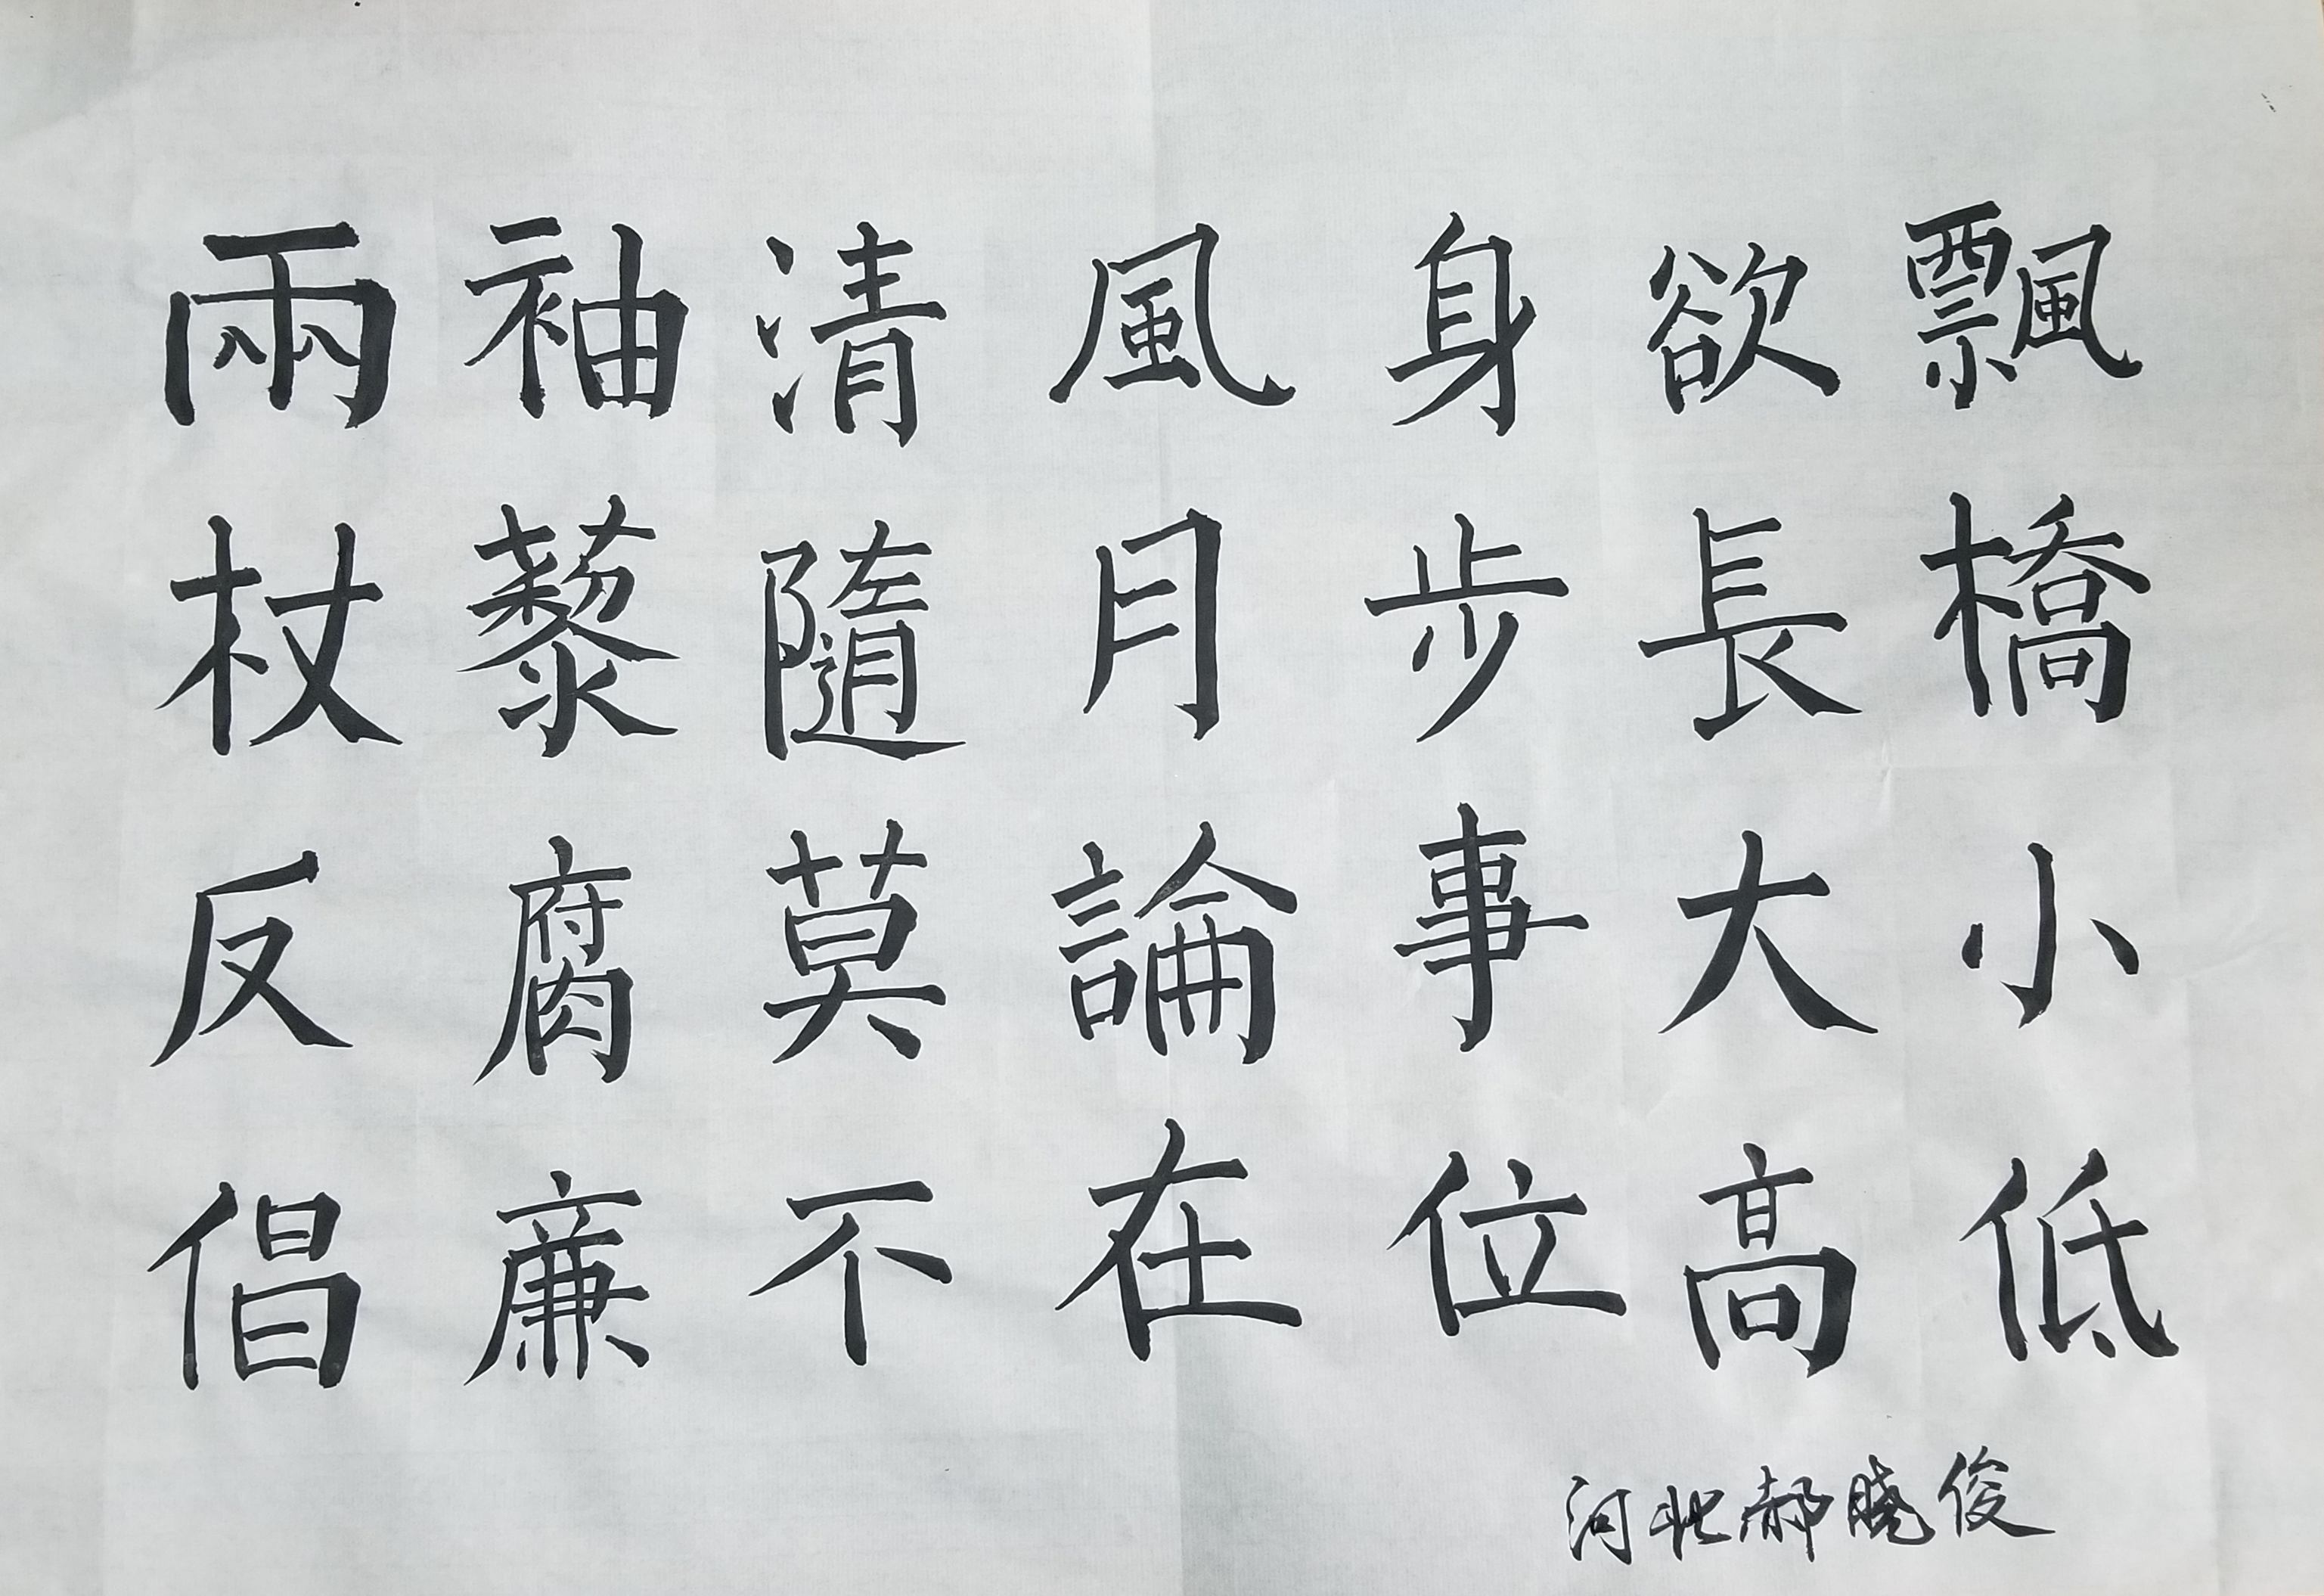 兩袖清風身欲飄
杖藜隨月步長橋
反腐莫論事大小
倡廉不在位高低
河北郝曉俊